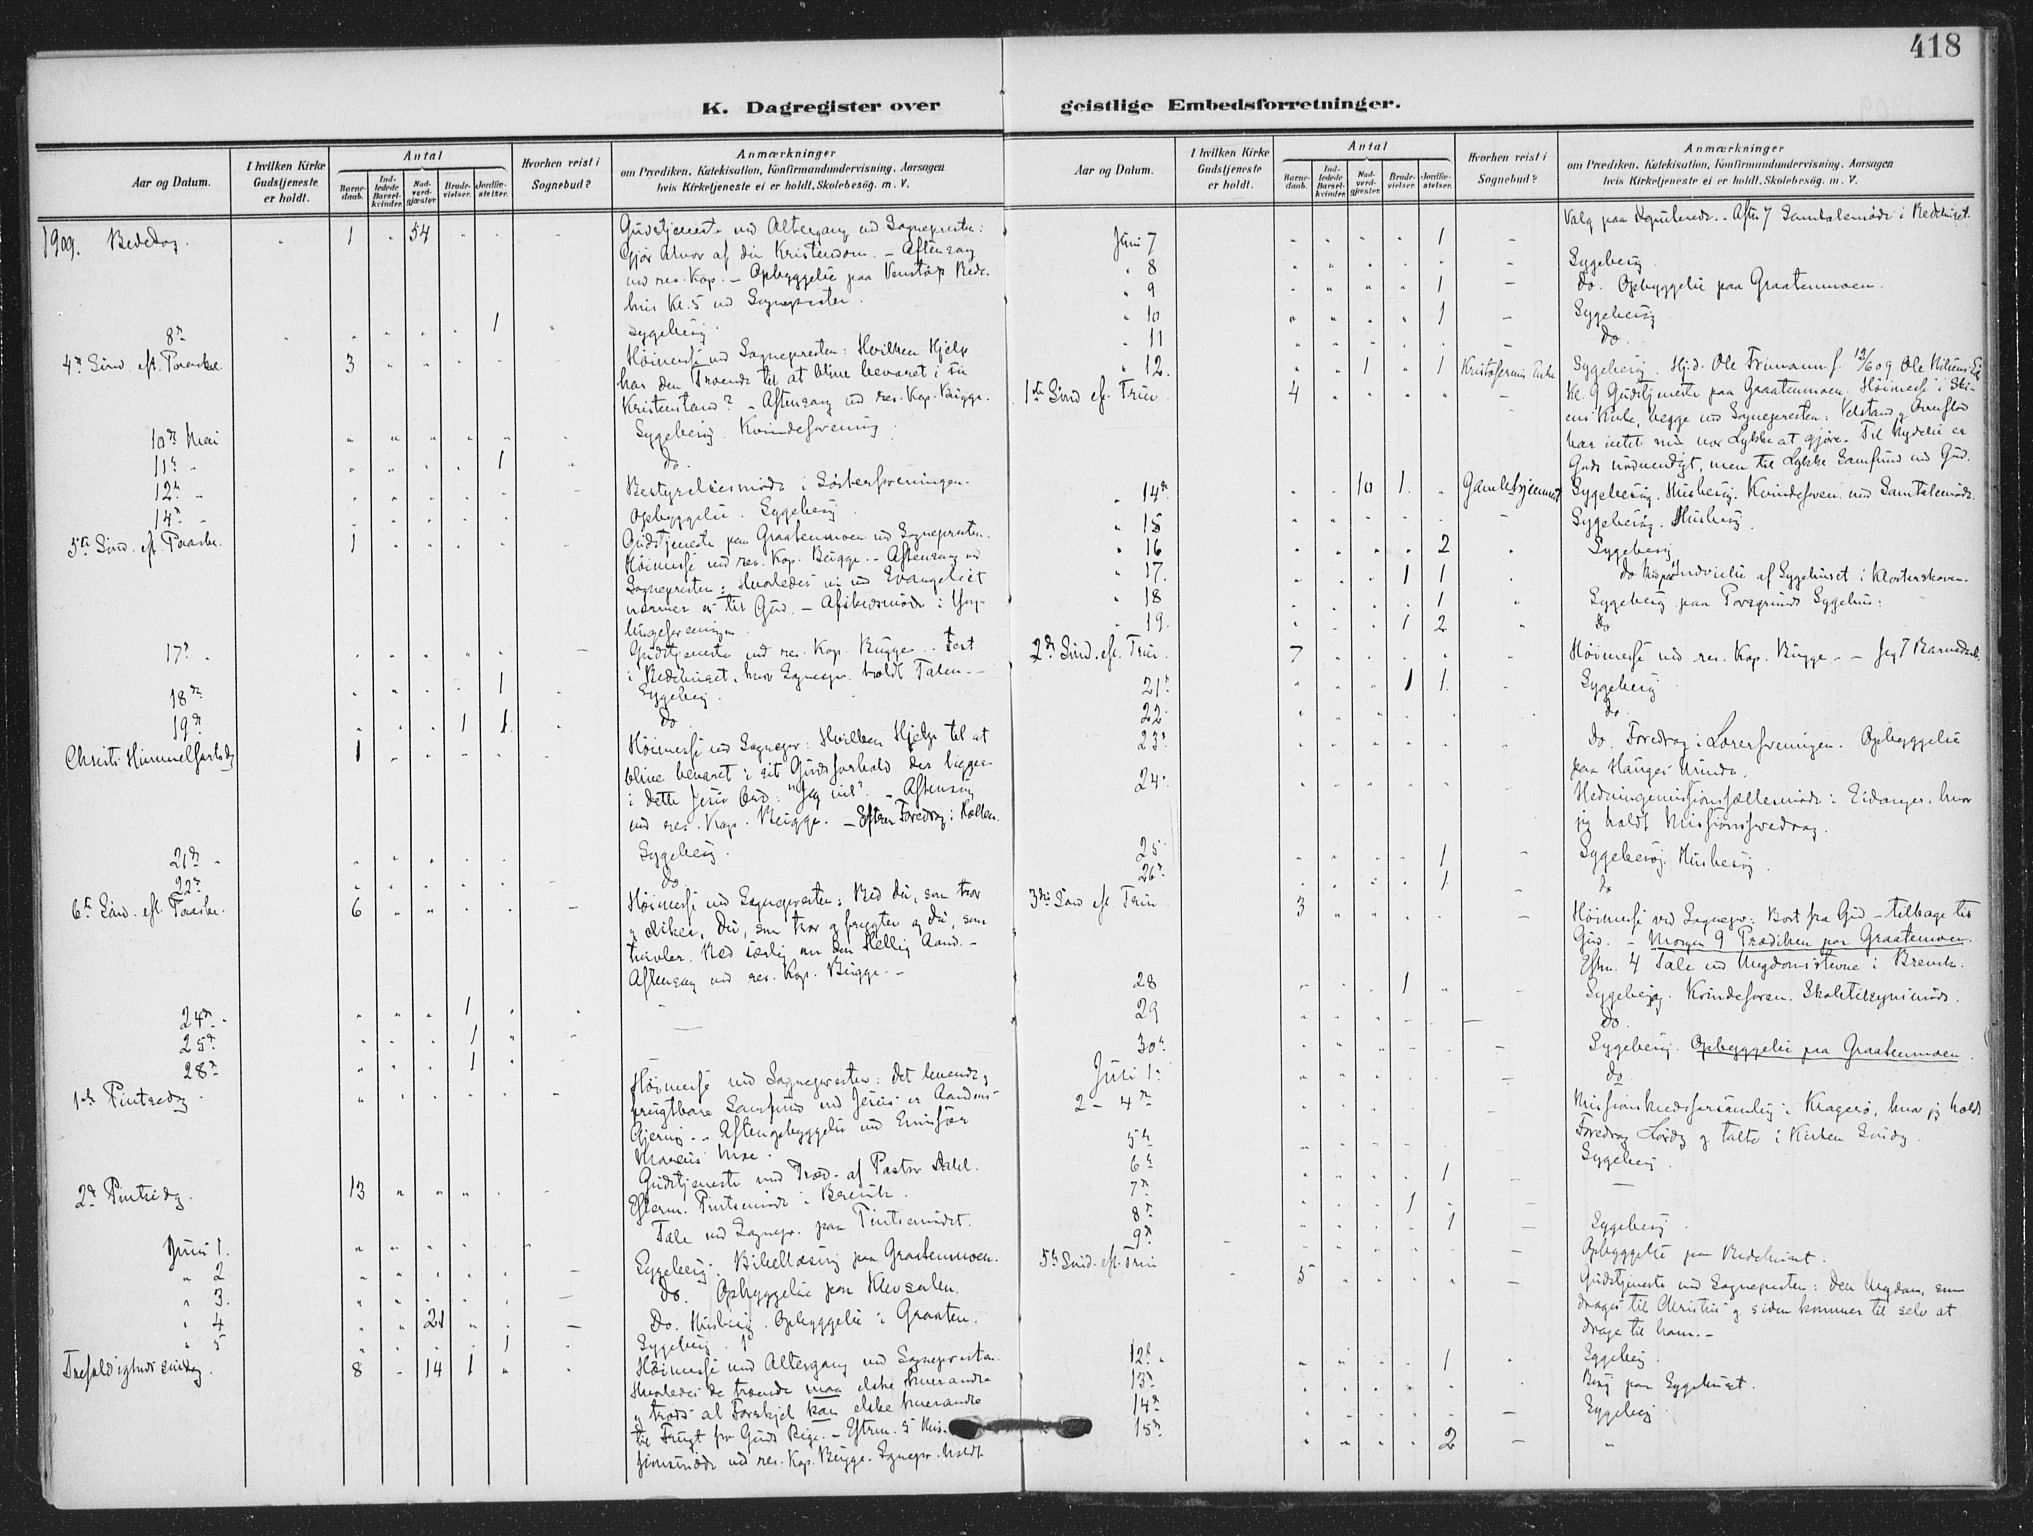 418
K. Dagregister over geistlige Embedsforretninger.
Aar og Datum.
I hvilken Kirke Gudstjeneste er holdt.
Antal
Barnedaab.
Indledede Barselkvinder.
Nadverdgjæster.
Brudevielser.
Jordfæstelser.
Hvorhen reist i Sognebud?
Anmærkninger
om Prædiken, Katekisation, Konfirmandundervisning, Aarsagen
hvis Kirketjeneste ei er holdt, Skolebesøg, m. V.
1909. Bededag " 1 " 54 " " " Gudstjeneste med Altergang ved Sognepresten:
Gjør Alvor af din Kristendom. - Aftensang
ved res. Kap. - Opbyggelse paa Venstøp Bede-
hus Kl. 5 ved Sognepresten.
8de 1 Sygebesøg.
4de Sønd. eft. Paaske. 3 Høimesse ved Sognepresten: Hvilken Hjelp
har den Troende til at blive bevaret i sin
Kristenstand? - Aftensang ved res. Kap. Bugge.
10de Mai Sygebesøg. Kvindeforening.
11te " 1 do.
12te " Bestyrelsesmøde i Søsterforeningen.
14de " Opbyggelse. Sygebesøg.
5te Sønd. ef. Paaske. 1 Gudstjeneste paa Graatenmoen ved Sognepresten.
Høimesse ved res. Kap. Bugge. - Aftensang ved
Sognepresten: Hvorledes vi ved Evangeliet
kommer til Gud. - Afskedsmøde i Yng-
lingeforeningen.
17de " Gudstjeneste ved res. Kap. Bugge. - Fest
i Bedehuset, hvor Sognepr. holdt Talen. -
18de 1 Sygebesøg.
19de 1 1 do.
Christi Himmelfartsdag 1 Høimesse ved Sognepr: Hvilken Hjelp til at
blive bevaret i sit Gudsforhold der ligger
i dette Jesu Ord: "Jeg vil". - Aftensang
ved res. Kap. Bugge. - Efterm Foredrag i
21de " Sygebesøg.
22de do
6te Sønd. ef. Paaske. 6 Høimesse ved Sognepresten: Bed du, som tror
og elsker, Du, som tror og frygter og du, som
tvivler. Bed særlig om den Hellig Aand. -
Aftensang ved res. Kap. Bugge. -
24de " 1
25de 1
28de 1
1ste Pintsedag. Høimesse ved Sognepresten: Det levende og
frugtbare Samfund med Jesus er Aandens
Gjerning. - Aftenopbyggelse ved Emissær
Moe.
2den Pintsedag. 13 Gudstjeneste med Præd. af Pastor Dahl.
Efterm. Pintsemøde i Brevik.
Tale ved Sognepr. paa Pintsemødet.
Juni 1. Sygebesøg. Bibellæsning paa Graatenmoen.
" 2 do. Opbyggelse paa Klevsalen.
" 3. Do. Husbesøg. Opbyggelse i Graaten.
" 4 21 Sygebesøg.
" 5 1
Trefoldighedssøndag. 8 " 14 1 Høimesse med Altergang ved Sognepresten.
Hvorledes de troende maa elske hverandre
og trods al Forskjel kan elske hverandre
til Frugt for Guds Rige. - Efterm. 5 Mis-
jonsmøde ved res. Kap. Bugge. Sognepr. holdt
Aar og Datum.
I hvilken Kirke Gudstjeneste er holdt.
Antal
Barnedaab.
Indledede Barselkvinder.
Nadverdgjæster.
Brudevielser.
Jordfæstelser.
Hvorhen reist i Sognebud?
Anmærkninger
om Prædiken, Katekisation, Konfirmandundervisning, Aarsagen
hvis Kirketjeneste ei er holdt, Skolebesøg, m. V.
Valg paa - Aften 7 Samtalemøde i Bedehuset.
Juni 7 1
" 8 Sygebesøg.
" 9 1 do. Opbyggelse paa Graatenmoen.
" 10 1 Sygebesøg
" 11 do.
" 12. 1 " 1 Sygebesøg. Hjd. Ole f. 12/6 09 Ole
1ste Sønd ef. Trin. 4 Kl. 9 Gudstjeneste paa Graatenmoen. Høimesse i Ski-
ens Kirke, begge ved Sognepresten: Velstand og Overflod
har intet med vor Lykke at gjøre. Til er
Gods nødvendigt, men til Lykke Samfund med Gud.
" 14de 10 1. Gamlehjemmet Sygebesøg. Husbesøg. Kvindeforen. med Samtalemøde.
" 15 Sygebesøg. Husbesøg.
" 16 2 Sygebesøg
" 17. 1 1 do Indvielse af Sygehuset i Klosterskoven.
" 18 1 Sygebesøg paa Porsgrunds Sygehus.
" 19. 1 2 do
2den Sønd. ef. Trin. 7 Høimesse ved res. Kap. Bugge. - Jeg 7 Barnedaab.
21de 1 1 Sygebesøg
22 do.
23de do. Foredrag i Lærerforeningen. Opbyggelse
paa Hauges Minde.
24. Hedningemissionsfællesmøde i Eidanger, hvor
jeg holdt Missionsforedrag.
25 1 Sygebesøg. Husbesøg.
26de 1 do
3die Sønd ef. Trin 3 Høimesse ved Sognepr: Bort fra Gud - tilbage til
Gud. - Morgen 9 Prædiken paa Graatenmoen.
Eftm. 4 Tale ved Ungdomsstevne i Brevik.
28 1 Sygebesøg. Kvindeforen. Skoletilsynsmøde.
29 do.
30te Sygebesøg. Opbyggelse paa Graatenmoen.
Juli 1. do.
2 - 4de Missionskredsforsamling i Kragerø, hvor jeg holdt
Foredrag Lørdag og talte i Kirken Søndag.
5te Sygebesøg.
6te 1
7de 1
8de 1 Sygebesøg.
9de Opbyggelse paa Bedehuset.
5te Sønd. eft. Trin 5 Gudstjeneste ved Sognepresten: Den Ungdom, som
drages til Christus og siden kommer til selv at
drage til ham. -
12te " 1 Sygebesøg.
13de Besøg paa Sygehuset.
14de Sygebesøg.
15de 2 "